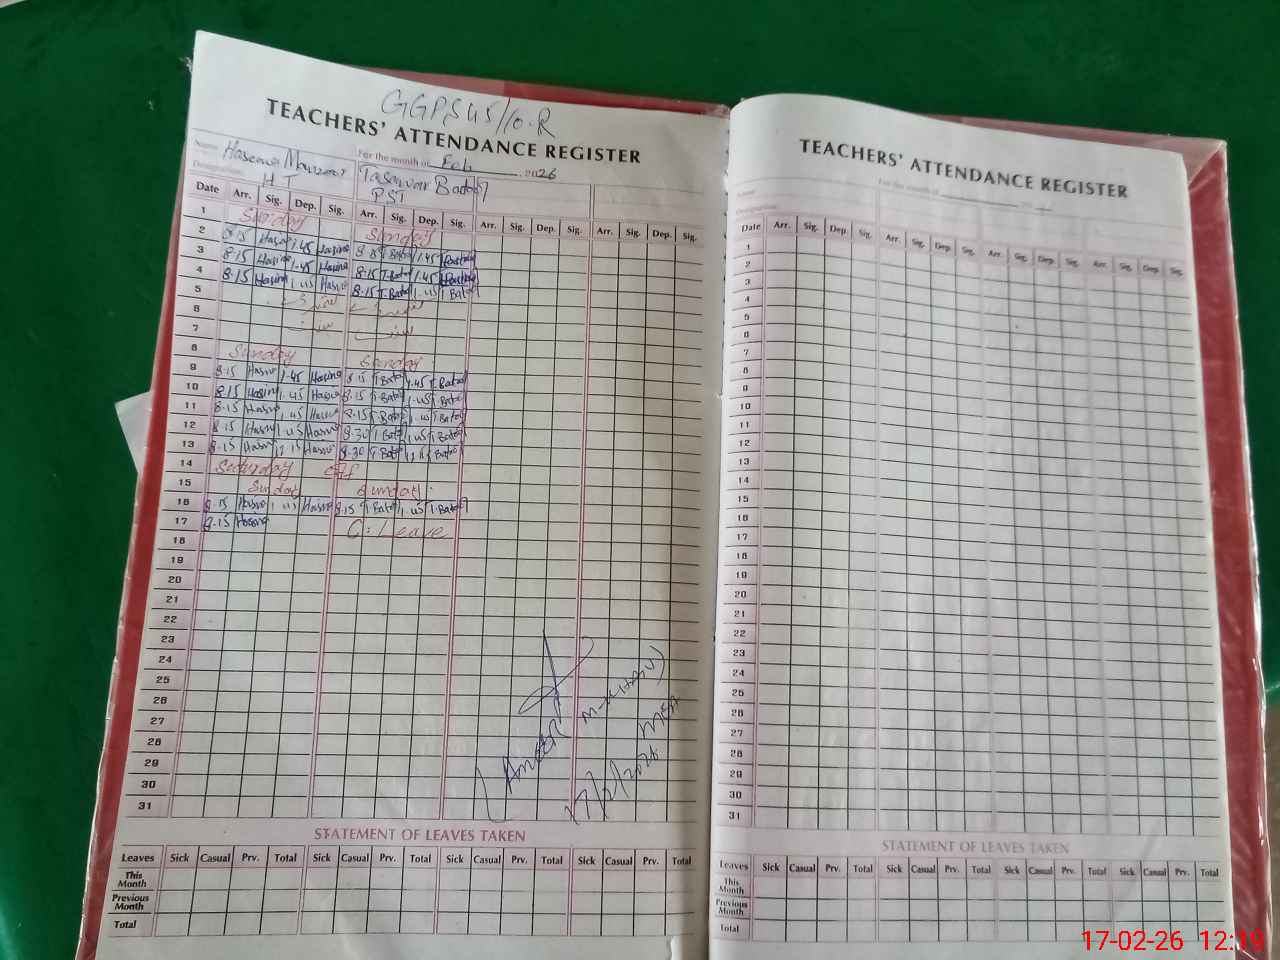 GGPS 45/10-R
TEACHERS' ATTENDANCE REGISTER
Name For the month of Feb 2026
Designation HT Tasawar Batool PST
Date Arr. Sig. Dep. Sig. Arr. Sig. Dep. Sig. Arr. Sig. Dep. Sig. Arr. Sig. Dep. Sig.
1 Sunday Sunday
2 8.15 Hasina 1.45 Hasina 8.15 T.Batool 1.45 T.Batool
3 8.15 Hasina 1.45 Hasina 8.15 T.Batool 1.45 T.Batool
4 8.15 Hasina 1.45 Hasina 8.15 T.Batool 1.45 T.Batool
5
6
7
8 Sunday Sunday
9 8.15 Hasina 1.45 Hasina 8.15 T.Batool 1.45 T.Batool
10 8.15 Hasina 1.45 Hasina 8.15 T.Batool 1.45 T.Batool
11 8.15 Hasina 1.45 Hasina 8.15 T.Batool 1.45 T.Batool
12 8.15 Hasina 1.45 Hasina 8.30 T.Batool 1.45 T.Batool
13 8.15 Hasina 12.15 Hasina 8.30 T.Batool 12.15 T.Batool
14 Saturday off
15 Sunday Sunday
16 8.15 Hasina 1.45 Hasina 8.15 T.Batool 1.45 T.Batool
17 8.15 Hasina C. Leave
18
19
20
21
22
23
24
25
26
27
28
29
30
31
MEA
17/2/2026
STATEMENT OF LEAVES TAKEN
Leaves Sick Casual Prv. Total Sick Casual Prv. Total Sick Casual Prv. Total Sick Casual Prv. Total
This Month
Previous Month
Total
TEACHERS' ATTENDANCE REGISTER
Name For the month of 20
Designation
Date Arr. Sig. Dep. Sig. Arr. Sig. Dep. Sig. Arr. Sig. Dep. Sig. Arr. Sig. Dep. Sig.
1
2
3
4
5
6
7
8
9
10
11
12
13
14
15
16
17
18
19
20
21
22
23
24
25
26
27
28
29
30
31
STATEMENT OF LEAVES TAKEN
Leaves Sick Casual Prv. Total Sick Casual Prv. Total Sick Casual Prv. Total Sick Casual Prv. Total
This Month
Previous Month
Total
17-02-26 12:19